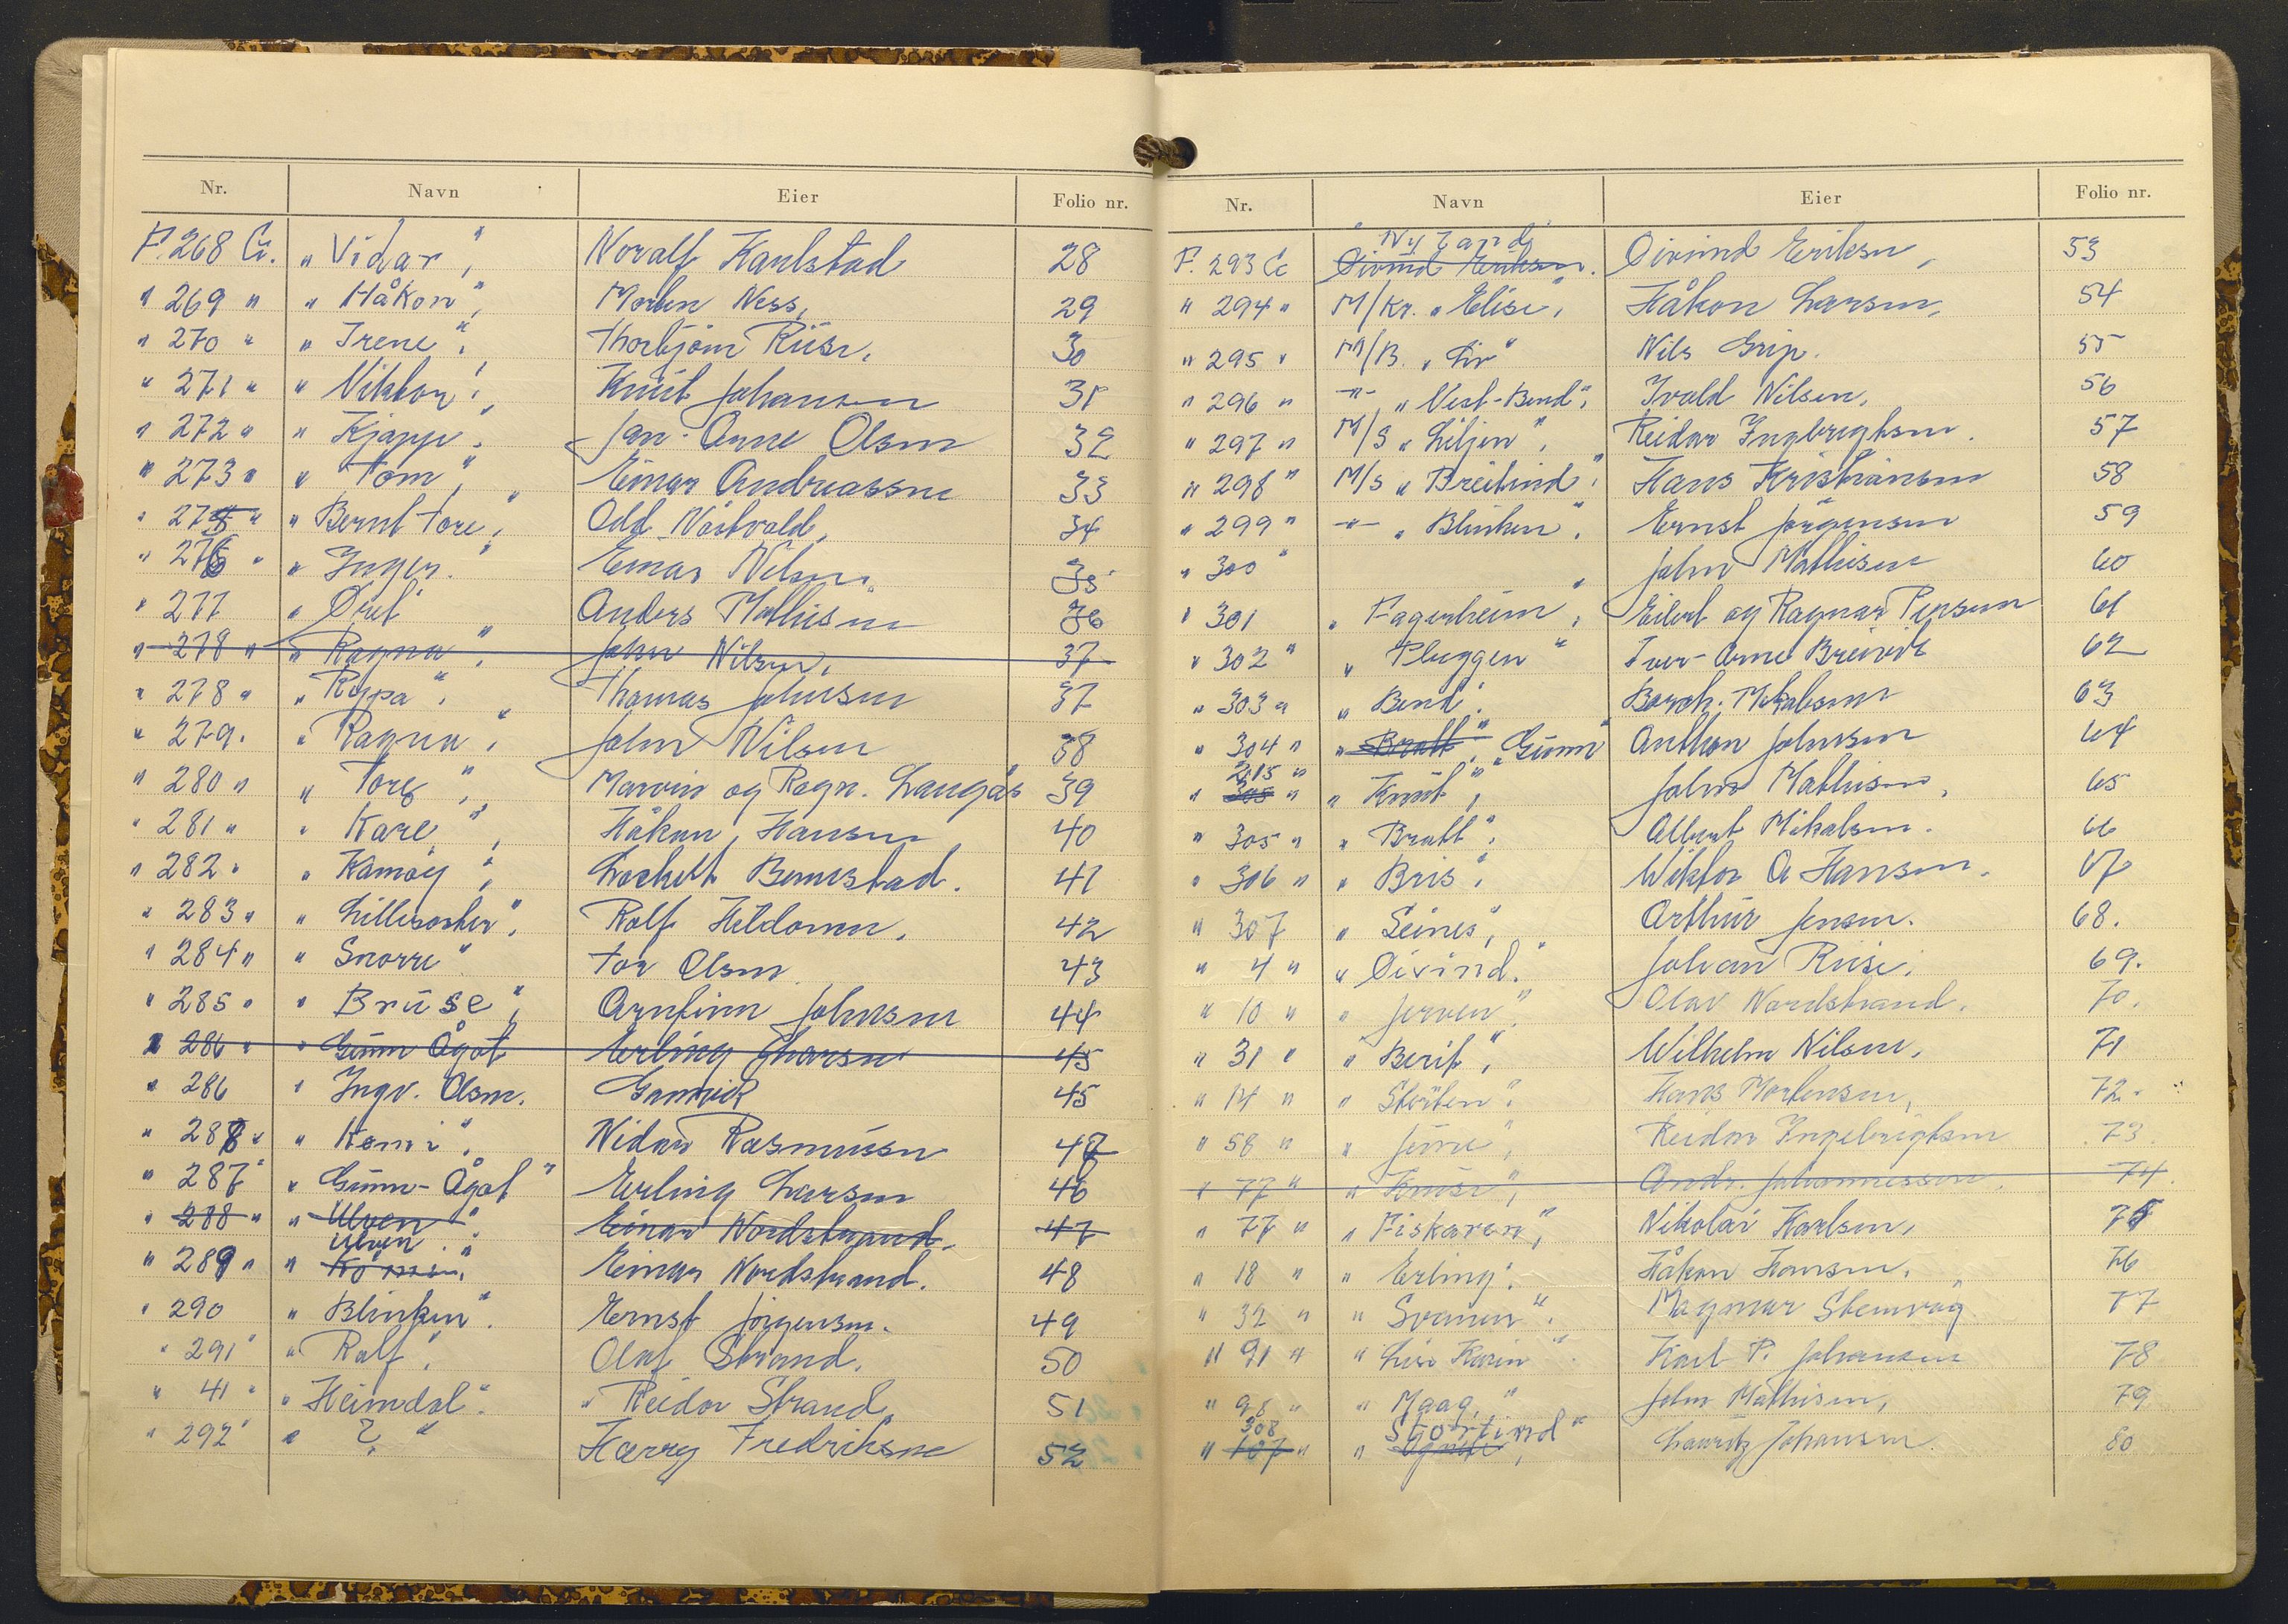 Nr. Navn Eier Folio nr.
F. 268 Cc. „ Vidar", Noralf Karlstad 28
" 269 " „ Håkon", Morten Ness, 29
" 270 " „ Irene". Thorbjörn Riise. 30
" 271 " „ Viktor". Knut Johansen 31
" 272 " „ Kjapp". Jan-Arne Olsen 32
" 273 " „ Tom", Einar Andreassen 33
" 275 " „ Bernt Tore", Odd Nöstvold, 34
" 276 " „ Inger." Einar Nilsen. 35
" 277 „ Öret" Anders Mathisen 36
" 278 " „ Ragna", John Nilsen, 37
" 278 " „ Rypa". Thomas Johnsen 37
" 279. „ Ragna", John Nilsen 38
" 280 " „ Tore", Marvin og Ragn. Laugås 39
" 281 " „ Kare", Håkon Hansen 40
" 282 " „ Kamöy", Bernstad. 41
" 283 " „ Lillesoster". Rolf Hildonen. 42
" 284 " „ Snorre" Tor Olsen 43
" 285 " „ Bruse", Arnfinn Johnsen 44
" 286 " „ Gunn Ågot Erling Larsen 45
" 286 " Ingv. Olsen. Gamvick 45
" 288 " „ Komi". Vidar Rasmussen 47
" 287 " „ Gunn-Ågot" Erling Larsen 46
" 288 " „ Ulven" Einar Nordstrand. 47
Ulven."
" 289 " „ Komi". Einar Nordstrand. 48
" 290 „ Blinken". Ernst Jörgensen. 49
" 291 " „ Ralf". Olaf Strand. 50
" 41 " „ Heimdal". " Reidar Strand 51
" 292 " „ ? " Harry Fredriksen 52
Nr. Navn Eier Folio nr.
„ Nyland"
F. 293 Cc Öivind Eriksen. Öivind Eriksen, 53
" 294 " M/Kr. „ Elise", Håkon Larsen, 54
" 295 " M/B. „ Liv" Nils Grip. 55
" 296 " -"- „ Vest-Bend", Ivald Nilsen, 56
" 297 " M/S „ Liljen", Reidar Ingebrigtsen. 57
" 298 " M/S „ Breitind", Hans Kristiansen 58
" 299 " -"- „ Blinken", Ernst Jörgensen 59
" 300 " John Mathisen 60
" 301 „ Fagerheim", Eilert og Ragnar Pensen 61
" 302 " „ Pluggen" Iver-Arne Breivik 62
" 303 " „ Bend". Borch. Mikalsen 63
" 304 " „ Bratt". „ Gunn" Anthon Johnsen 64
215 "
" 305 " „ Knut", John Mathisen, 65
" 305 " „ Bratt", Albert Mikalsen. 66
" 306 " „ Bris". Wiktor A Hansen. 67
" 307 „ Seines", Arthur Jensen. 68.
" 4 " „ Öivind." Johan Riise. 69.
" 10 " „ Jerven". Olav Nordstrand. 70.
" 31 " „ Berit", Wilhelm Nilsen, 71
" 14 " „ Stårten". Hans Mortensen, 72.
" 58 " „ June", Reidar Ingebrigtsen 73.
" 77 " „ Knise", Andr. Johannessen. 74.
" 77 " „ Fiskaren", Nikolai Karlsen, 75
" 18 " „ Erling". Håkon Hansen. 76
" 32 " „ Svanen". Magnar Stenvåg 77
" 91 " „ Liss Karin". Karl P. Johansen 78
" 98 " „ Maag", John Mathisen, 79
308 Stortind"
" 107 " „ Lauritz Johansen. 80